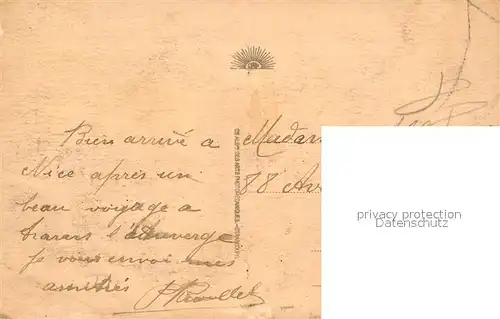 Bien arrivé a
Nice après un
beau voyage a
travers l'Auvergne
Je vous envoi mes
amitiés
Madam
88 Av
privacy protection
Datenschutz